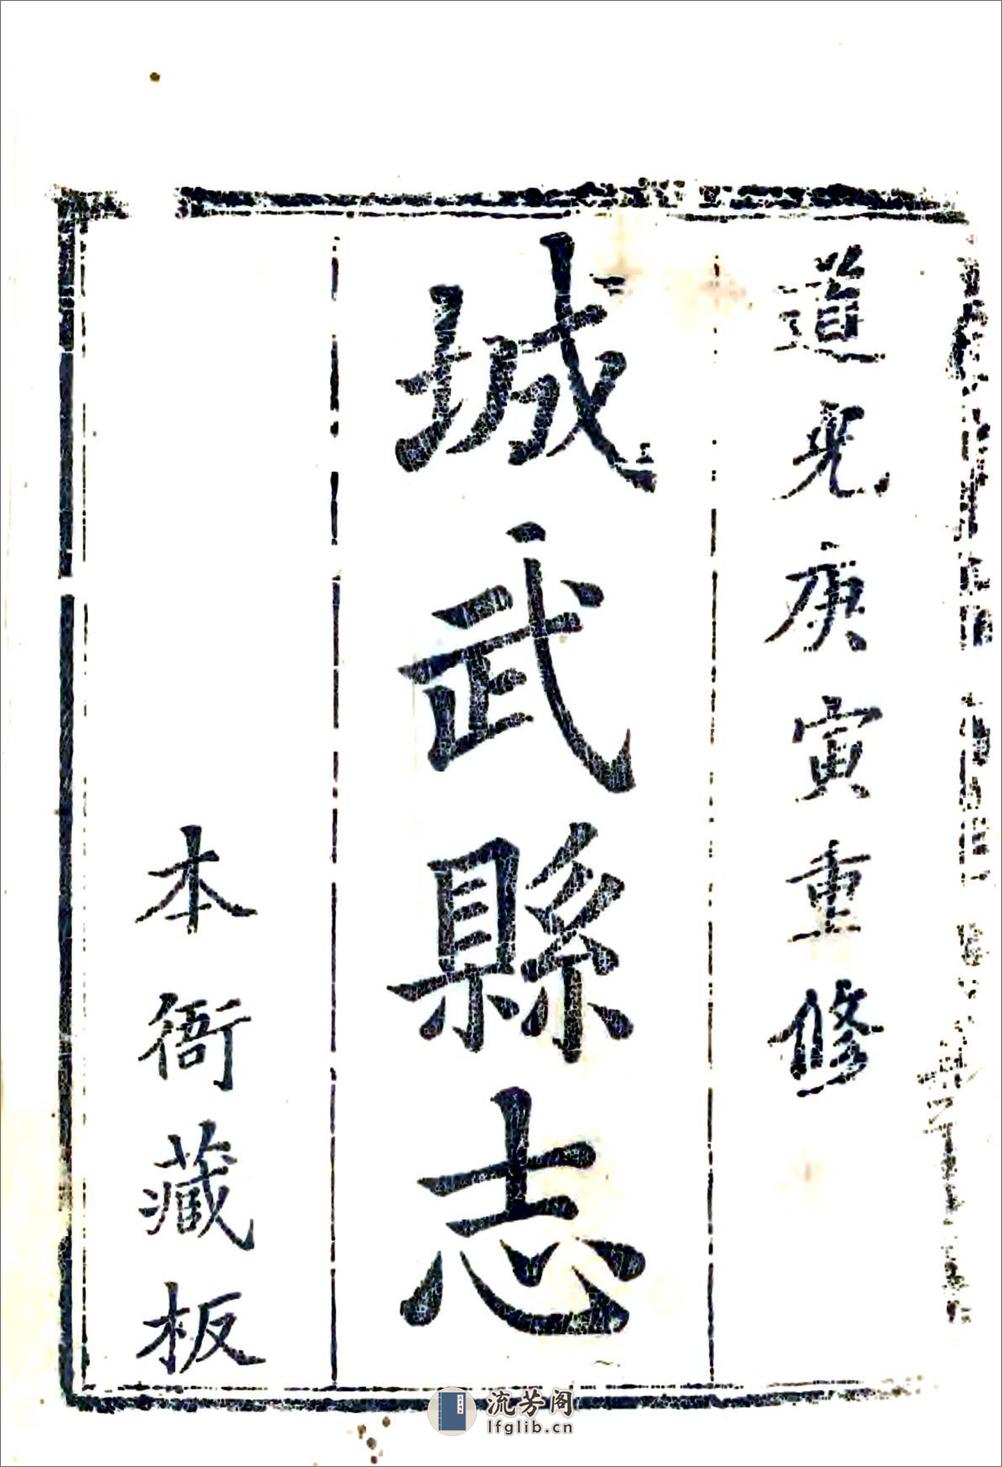 道光庚寅重修
城武縣志
本衙藏板
流芳阁
lfglib.cn